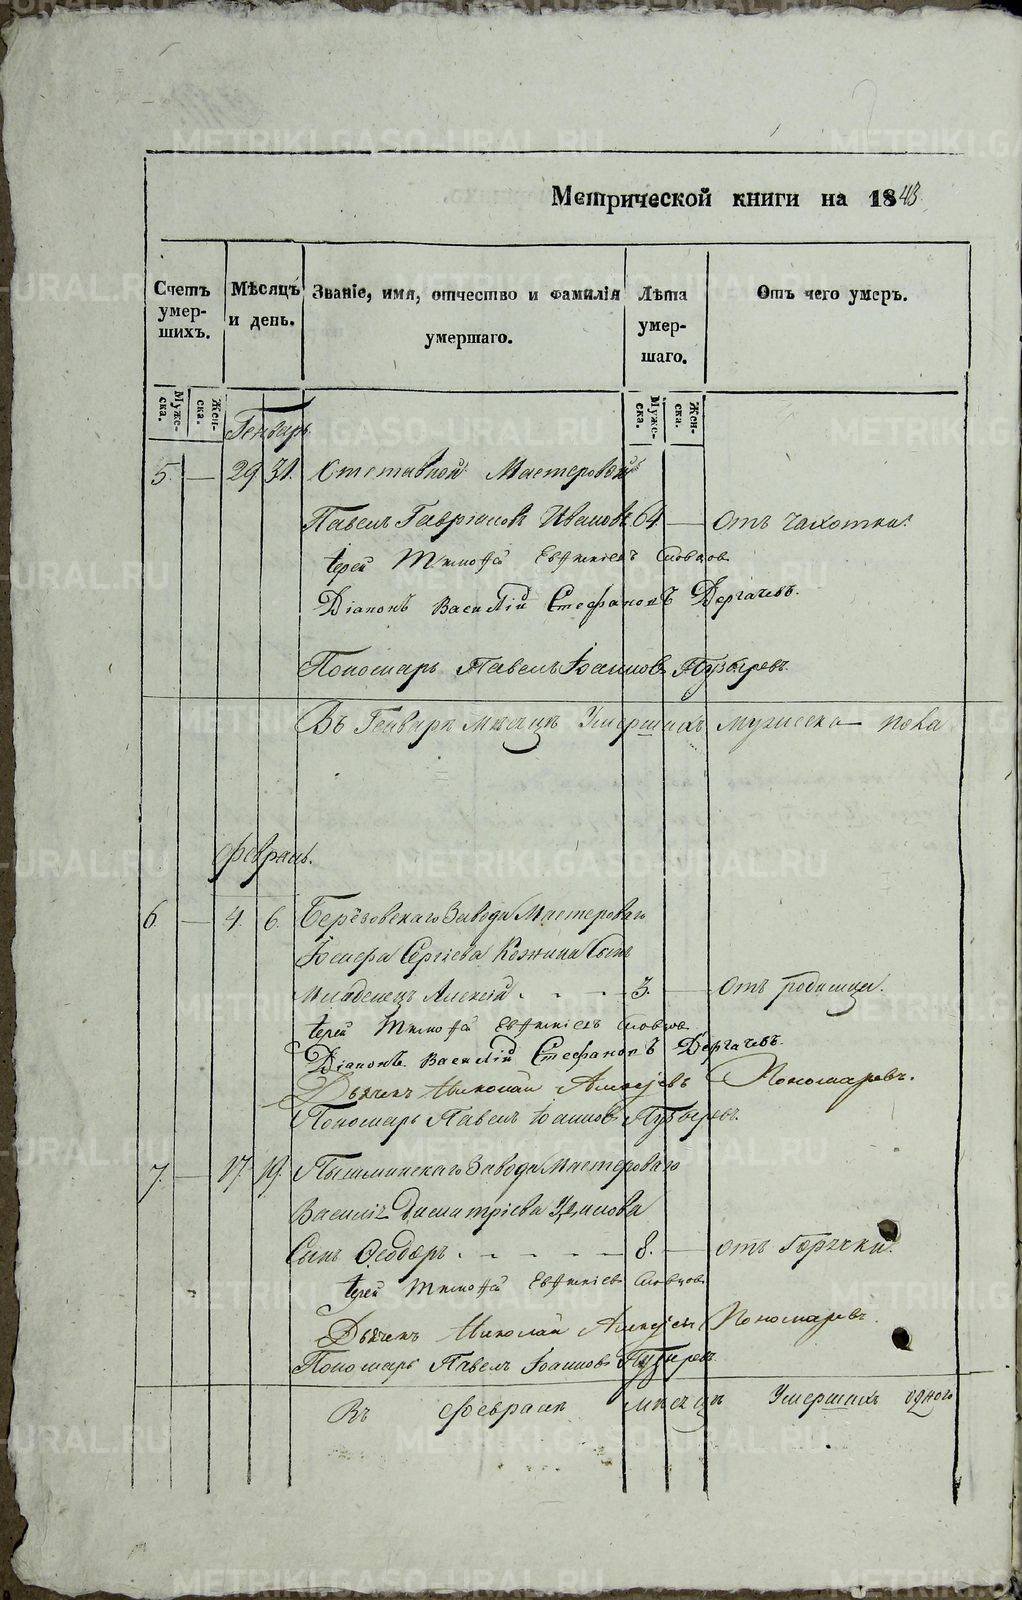 Метрической книги на 1843
Счетъ умер- шихъ.
Мѣсяцъ и день.
Званіе, имя, отчество и фамилія умершаго.
Лѣта умер- шаго.
Отъ чего умеръ.
Муже- ска.
Жен- ска.
Муже- ска.
Жен- ска.
Генварь.
5. — 29 31. Отставной Мастеровой
Павелъ Гавриловъ Ивановъ 64 — отъ чахотки.
Іерей Тимоѳей Евѳиміевъ Словцовъ
Діаконъ Василій Стефановъ Дергачевъ.
Пономарь Павелъ Іоанновъ Пузыревъ.
Въ Генварѣ мѣсяцѣ Умершихъ мужеска пола
Февраль.
6. — 4. 6. Берёзовскаго Завода Мастероваго
Іосифа Сергіева Кожина Сынъ
младенецъ Алексій. — 3. — отъ родимца.
Іерей Тимоѳей Евѳиміевъ Словцовъ
Діаконъ Василій Стефановъ Дергачевъ.
Дьячекъ Николай Алексѣевъ Пономаревъ.
Пономарь Павелъ Іоанновъ Пузыревъ.
7. — 17. 19. Пышминскаго Завода Мастероваго
Василія Димитріева
Сынъ Ѳеодоръ. — 8. — отъ Горячки.
Іерей Тимоѳей Евѳиміевъ Словцовъ
Дьячекъ Николай Алексѣевъ Пономаревъ.
Пономарь Павелъ Іоанновъ Пузыревъ.
Въ февралѣ мѣсяцѣ Умершихъ одного
METRIKI.GASO-URAL.RU